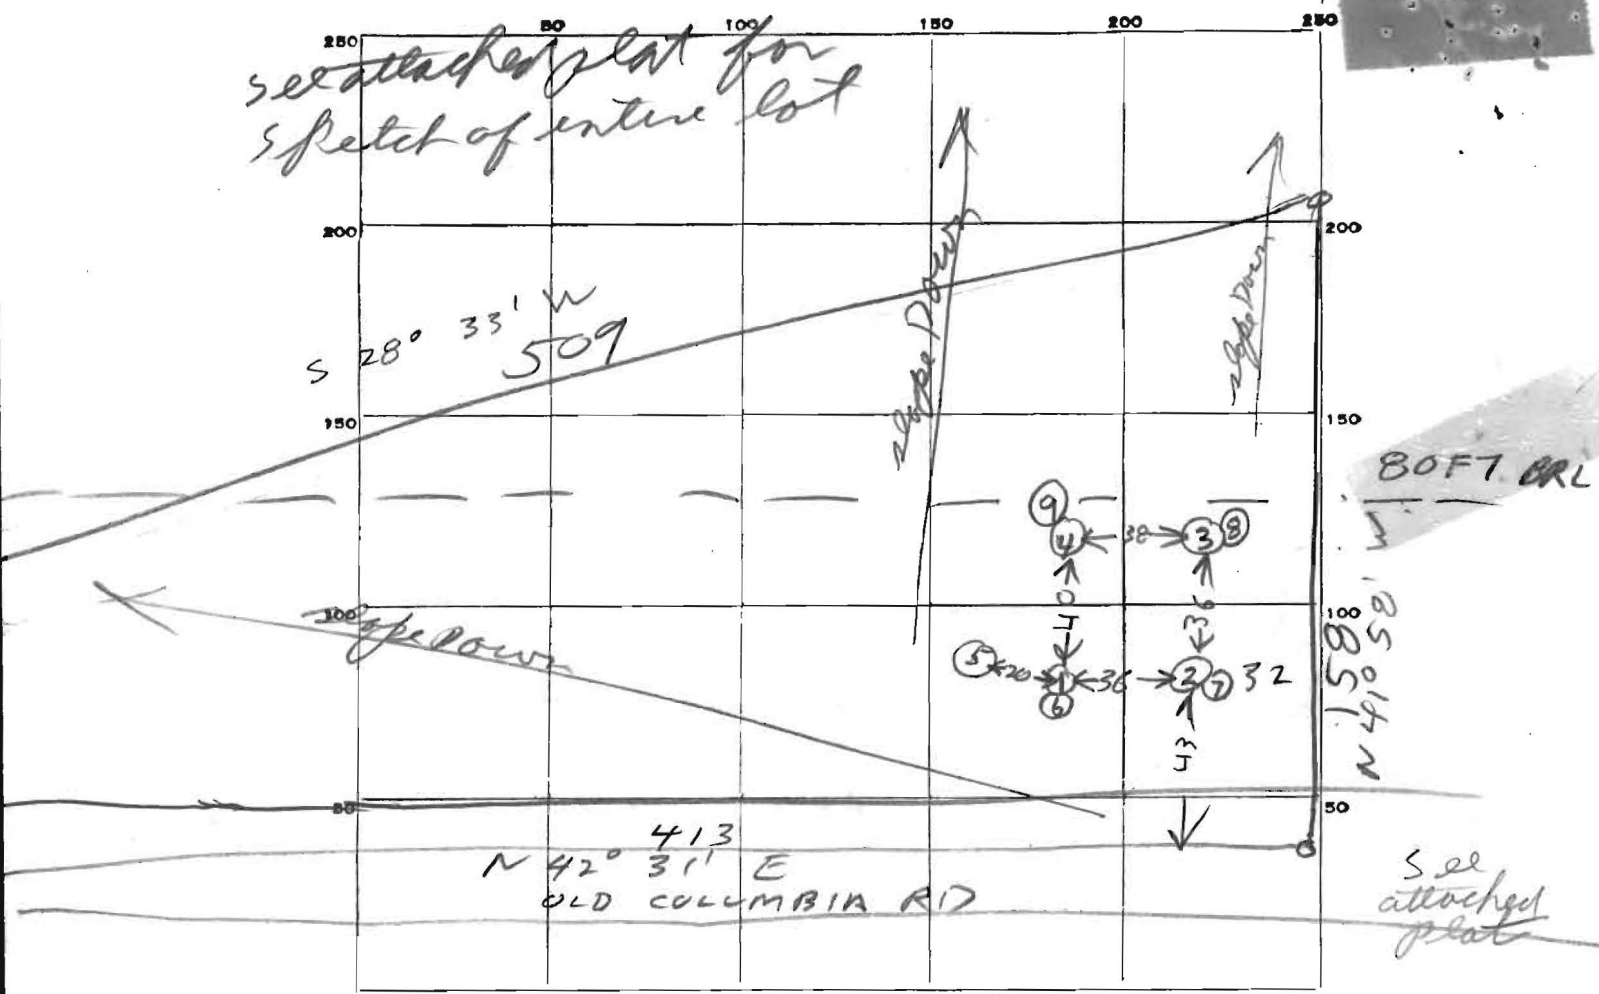 50 100 150 200 250
250
see attached plat for
sketch of entire lot
200 200
S 28° 33' W
509
slope Down
slope Down
150 150
80FT BRL
9
4 38 3 8
40 36
100 100
slope Down
5 20 1 36 2 7 32
6
43
158
N 41° 58' W
50 50
413
N 42° 31' E
OLD COLUMBIA RD
See
attached
plat